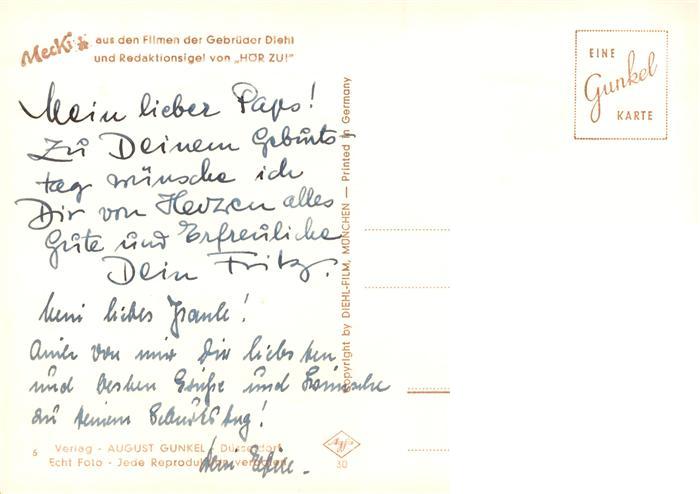 Mecki aus den Filmen der Gebrüder Diehl
und Redaktionsigel von „HÖR ZU!"
EINE
Gunkel
KARTE
Mein lieber Paps!
Zu Deinem Geburts-
tag wünsche ich
Dir von Herzen alles
Gute und Erfreuliche
Dein Fritz.
Mein liebes
Auch von mir Dir liebsten
und besten Grüße und Wünsche
zu deinem Geburtstag!
Copyright by DIEHL-FILM, MÜNCHEN — Printed in Germany
6 Verlag - AUGUST GUNKEL - Düsseldorf
Echt Foto - Jede Reproduktion verboten
Dein
Agfa
30